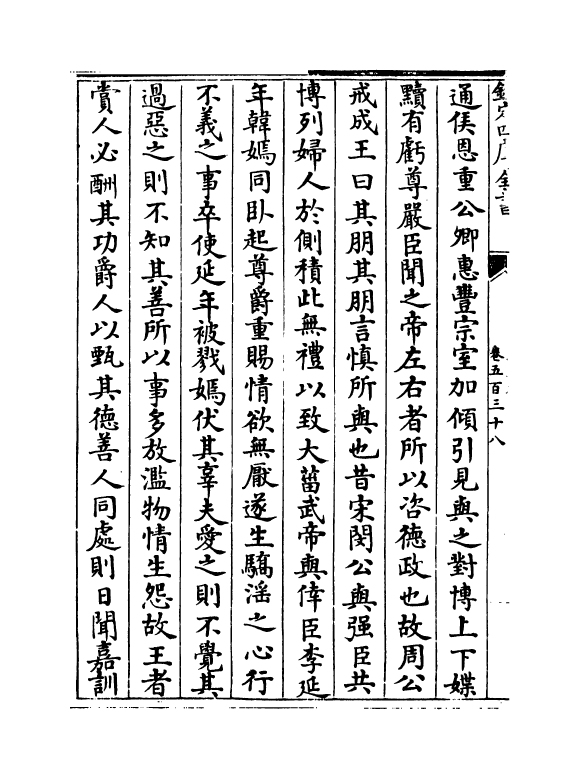 欽定四庫全書
卷五百三十八
通侯恩重公卿惠豐宗室加傾引見與之對博上下媟
黷有虧尊嚴臣聞之帝左右者所以咨德政也故周公
戒成王曰其朋其朋言慎所與也昔宋閔公與强臣共
博列婦人於側積此無禮以致大菑武帝與倖臣李延
年韓嫣同卧起尊爵重賜情欲無厭遂生驕滛之心行
不義之事卒使延年被戮嫣伏其辜夫愛之則不覺其
過惡之則不知其善所以事多放濫物情生怨故王者
賞人必酬其功爵人以甄其德善人同處則日聞嘉訓